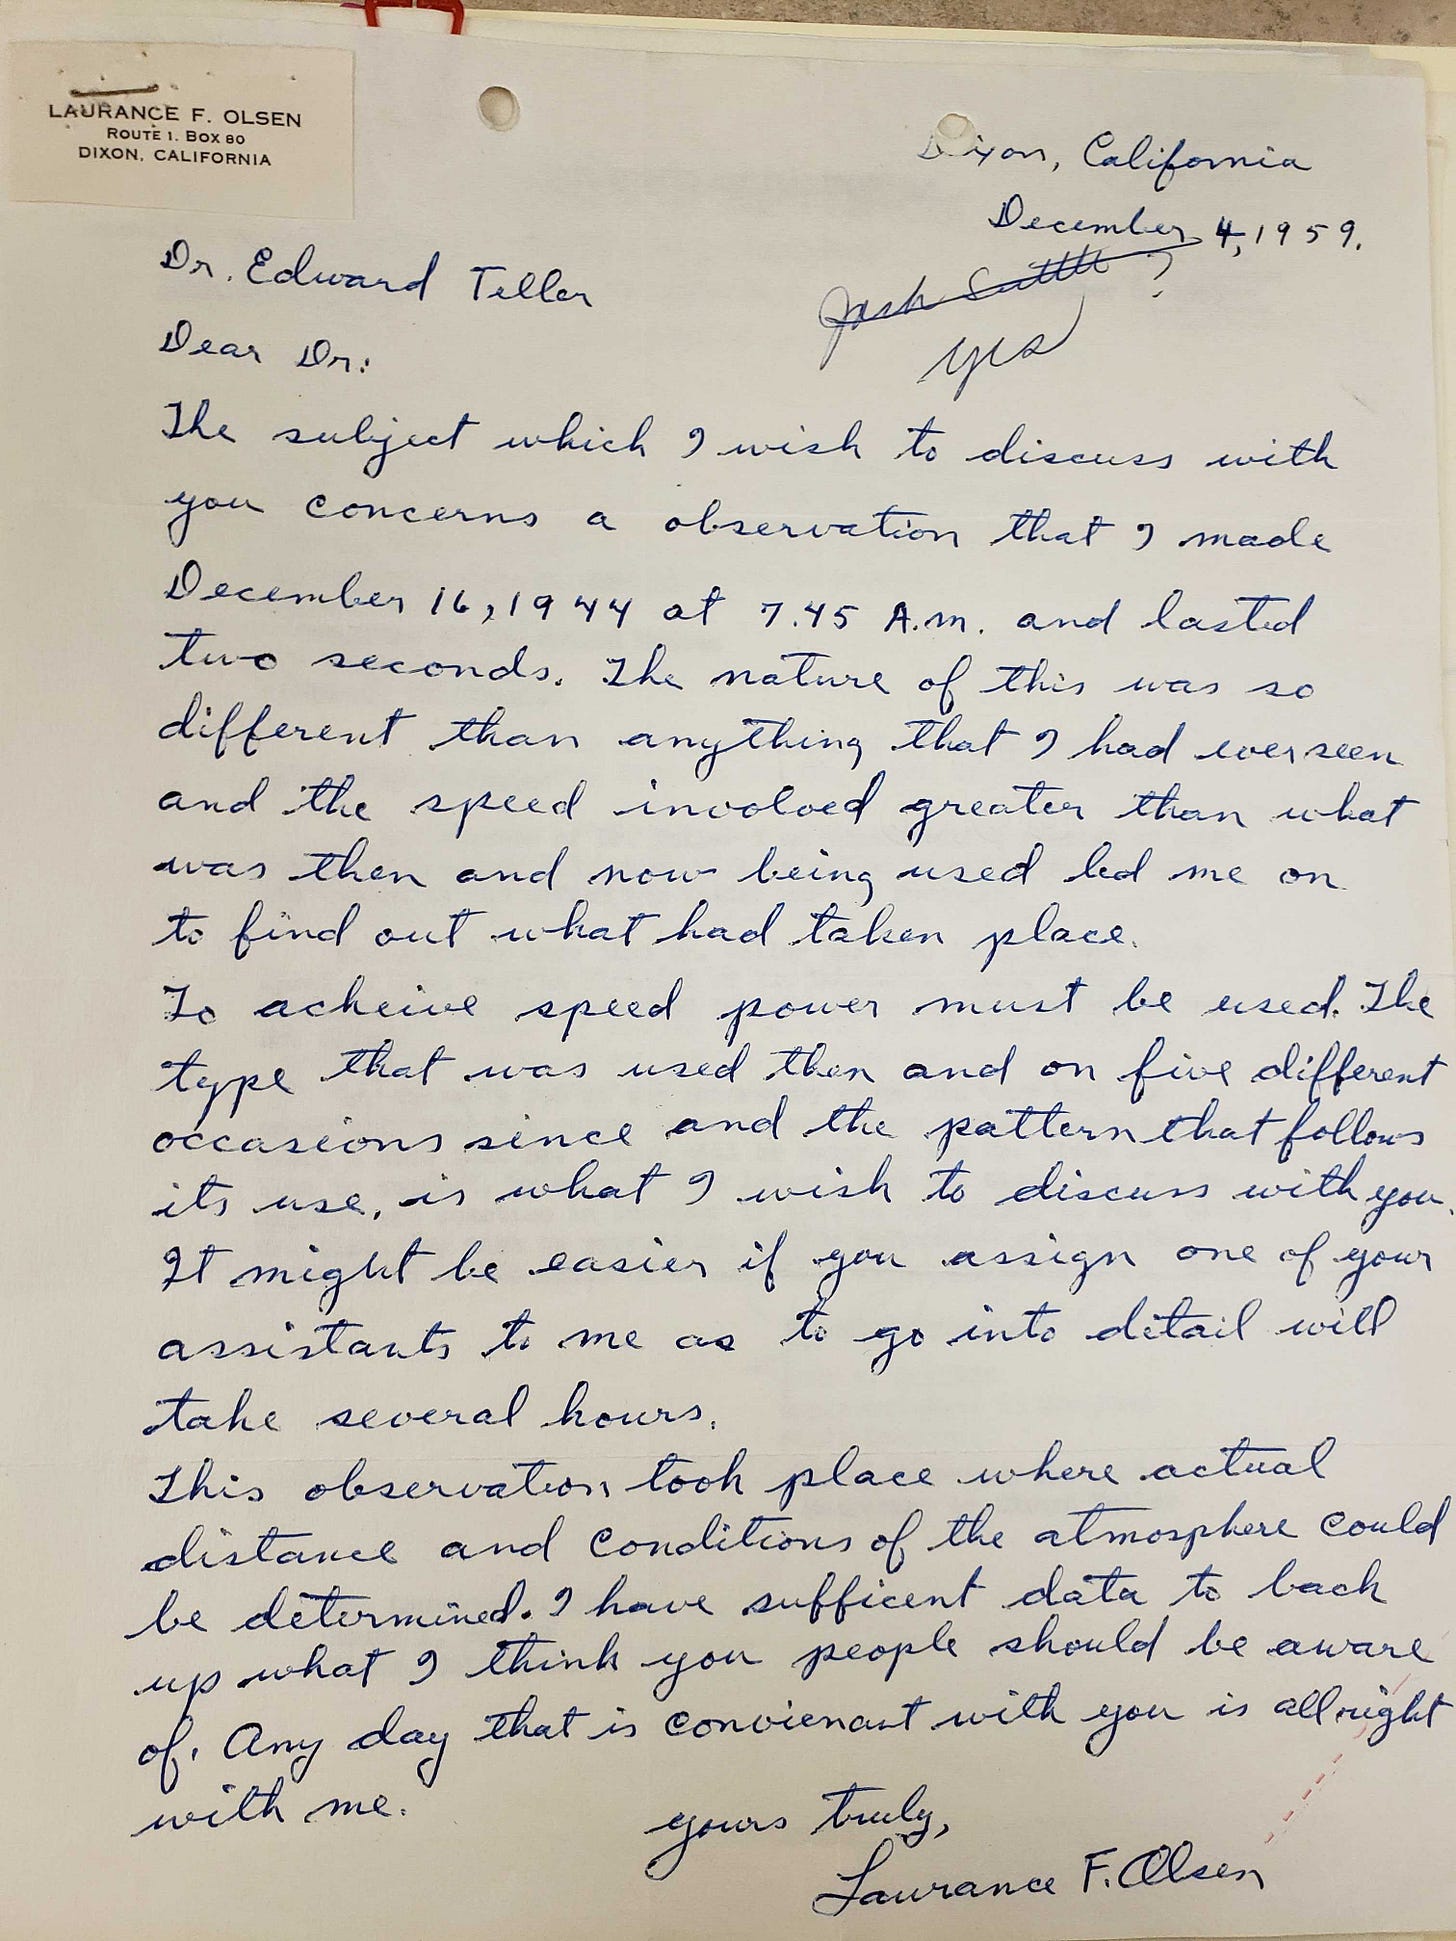 LAURANCE F. OLSEN
ROUTE 1. BOX 80
DIXON, CALIFORNIA
Dixon, California
December 4, 1959.
Dr. Edward Teller
?
yes
Dear Dr:
The subject which I wish to discuss with
you concerns a observation that I made
December 16, 1944 at 7.45 A.m. and lasted
two seconds. The nature of this was so
different than anything that I had ever seen
and the speed involved greater than what
was then and now being used led me on
to find out what had taken place.
To acheive speed power must be used. The
type that was used then and on five different
occasions since and the pattern that follows
its use, is what I wish to discuss with you.
It might be easier if you assign one of your
assistants to me as to go into detail will
take several hours.
This observation took place where actual
distance and conditions of the atmosphere could
be determined. I have sufficent data to back
up what I think you people should be aware
of. Any day that is convienant with you is allright
with me.
yours truly,
Laurance F. Olsen